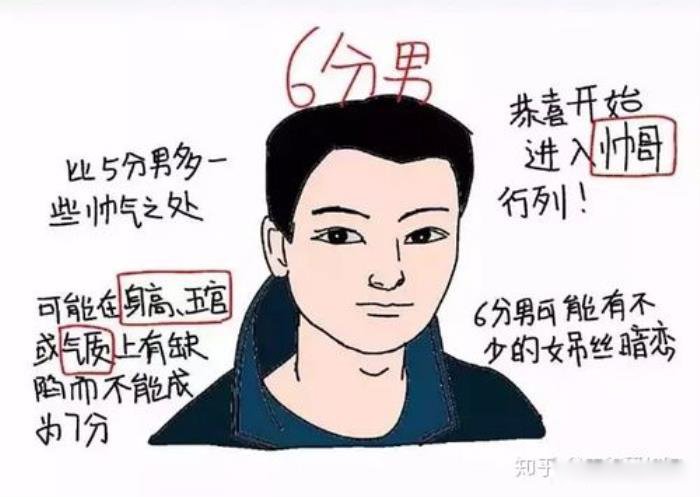 6分男
比5分男多一
些帅气之处
恭喜开始
进入帅哥
行列！
可能在身高、五官
或气质上有缺
陷而不能成
为7分
6分男可能有不
少的女吊丝暗恋
知乎